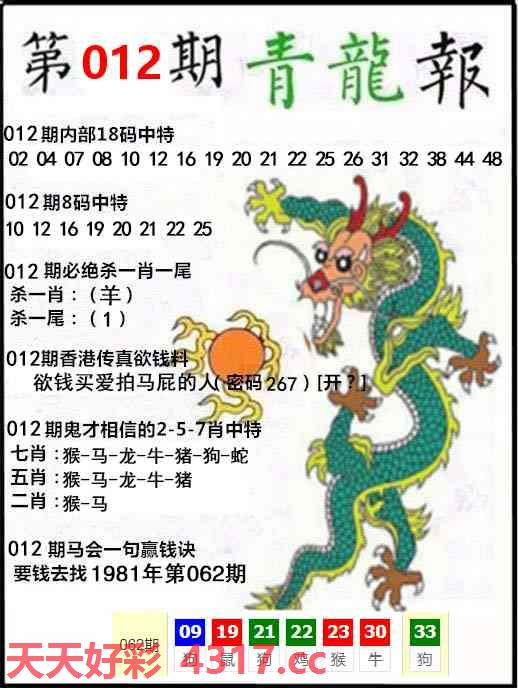 第012期 青龍報
012期内部18码中特
02 04 07 08 10 12 16 19 20 21 22 25 26 31 32 38 44 48
012期8码中特
10 12 16 19 20 21 22 25
012 期必绝杀一肖一尾
杀一肖：（羊）
杀一尾：（1）
012期香港传真欲钱料
欲钱买爱拍马屁的人（密码267）[开？]
012期鬼才相信的2-5-7肖中特
七肖：猴-马-龙-牛-猪-狗-蛇
五肖：猴-马-龙-牛-猪
二肖：猴-马
012 期马会一句赢钱诀
要钱去找1981年第062期
062期 09 19 21 22 23 30 33
狗 鼠 狗 鸡 猴 牛 狗
天天好彩 4317.cc